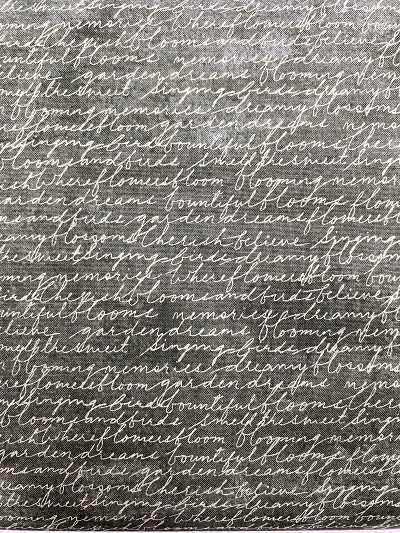 smell the sweet singing birds dreamy blossoms
memories where flowers bloom bountiful
Cherish blooms and birds believe
bountiful blooms memories dreamy
believe garden dreams blooming
smell the sweet singing birds dreamy
blooming memories dreamy blossoms
where flowers bloom garden dreams memories
singing birds bountiful blooms
blooms and birds smell the sweet singing
Cherish where flowers bloom blooming memories
garden dreams bountiful blooms
blooms and birds garden dreams flowers bloom
dreamy blossoms Cherish believe singing
smell the sweet singing birds dreamy blossoms
blooming memories where flowers bloom
birds Cherish blooms and birds believe
bountiful blooms memories dreamy
believe garden dreams blooming
smell the sweet singing birds dreamy
blooming memories dreamy blossoms
where flowers bloom garden dreams memories
singing birds bountiful blooms
blooms and birds smell the sweet singing
Cherish where flowers bloom blooming memories
garden dreams bountiful blooms
blooms and birds garden dreams flowers bloom
dreamy blossoms Cherish believe singing
the sweet singing birds dreamy blossoms
blooming memories where flowers bloom